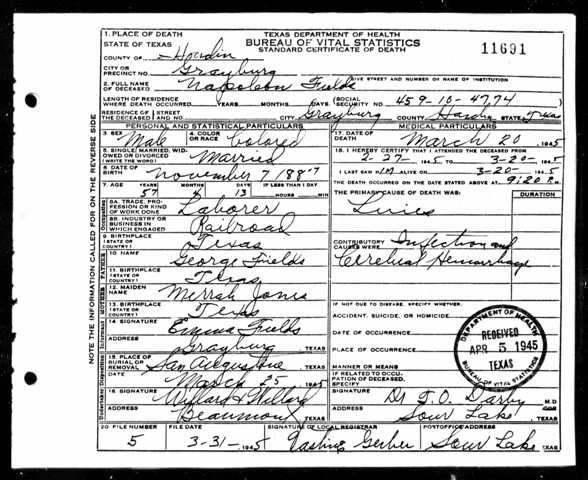 1. PLACE OF DEATH
STATE OF TEXAS
TEXAS DEPARTMENT OF HEALTH
BUREAU OF VITAL STATISTICS
STANDARD CERTIFICATE OF DEATH
11691
COUNTY OF Hardin
CITY OR PRECINCT NO. Grayburg
GIVE STREET AND NUMBER OR NAME OF INSTITUTION
2. FULL NAME OF DECEASED Napoleon Fields
LENGTH OF RESIDENCE WHERE DEATH OCCURRED YEARS MONTHS DAYS (SOCIAL SECURITY NO. 459-10-4774
RESIDENCE OF THE DECEASED STREET AND NO. CITY Grayburg COUNTY Hardin STATE Texas
PERSONAL AND STATISTICAL PARTICULARS
3. SEX Male 4. COLOR OR RACE Colored
5. SINGLE, MARRIED, WIDOWED OR DIVORCED (WRITE THE WORD) Married
6. DATE OF BIRTH November 7 1887
7. AGE YEARS 57 MONTHS DAYS 13 IF LESS THAN 1 DAY HOURS MIN
8A. TRADE, PROFESSION OR KIND OF WORK DONE Laborer
8B. INDUSTRY OR BUSINESS IN WHICH ENGAGED Railroad
9. BIRTHPLACE (STATE OR COUNTRY) Texas
10 NAME George Fields
11. BIRTHPLACE (STATE OR COUNTRY) Texas
12. MAIDEN NAME Merrah Jones
13. BIRTHPLACE (STATE OR COUNTRY) Texas
14. SIGNATURE Emma Fields
ADDRESS Grayburg TEXAS
15. PLACE OF BURIAL OR REMOVAL San Augustine TEXAS
DATE March 25 1945
16. SIGNATURE Willard & Willard
ADDRESS Beaumont, TEXAS
MEDICAL PARTICULARS
17. DATE OF DEATH March 20 1945
18. I HEREBY CERTIFY THAT I ATTENDED THE DECEASED FROM
2-27- 1945 TO 3-20- 1945
I LAST SAW HIM ALIVE ON 3-20- 1945
THE DEATH OCCURRED ON THE DATE STATED ABOVE AT 9:20 P. M.
THE PRIMARY CAUSE OF DEATH WAS: DURATION
Luies
CONTRIBUTORY CAUSES WERE Infection and
Cerebral Hemorrhage
IF NOT DUE TO DISEASE, SPECIFY WHETHER:
ACCIDENT, SUICIDE, OR HOMICIDE
DATE OF OCCURRENCE
PLACE OF OCCURRENCE
MANNER OR MEANS
IF RELATED TO OCCUPATION OF DECEASED, SPECIFY
SIGNATURE Dr T. O. Darby M.D
ADDRESS Sour Lake TEXAS
DEPARTMENT OF HEALTH
RECEIVED
APR 5 1945
TEXAS
BUREAU OF VITAL STATISTICS
20 FILE NUMBER FILE DATE SIGNATURE OF LOCAL REGISTRAR POSTOFFICE ADDRESS
5 3-31-1945 Gerber Sour Lake TEXAS
NOTE THE INFORMATION CALLED FOR ON THE REVERSE SIDE